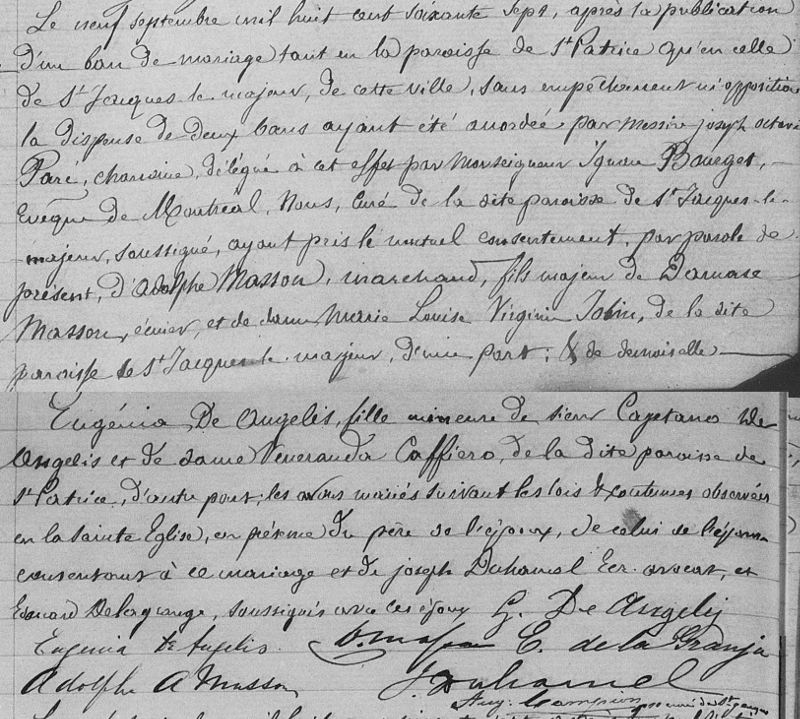 Le neuf septembre mil huit cent soixante sept, après la publication
d'un ban de mariage tant en la paroisse de St Patrice qu'en celle
de St Jacques-le-majeur, de cette ville, sans empêchement ni opposition
la dispense de deux bans ayant été accordée par Messire joseph octave
Paré, chanoine, délégué à cet effet par Monseigneur Ignace Bourget,
Evêque de Montréal, Nous, Curé de la dite paroisse de St Jacques-le-
majeur, soussigné, ayant pris le mutuel consentement, par parole de
présent, d'adolphe Masson, marchand, fils majeur de Damase
Masson, écuier, et de dame Marie Louise Virginie Jobin, de la dite
paroisse de St Jacques le majeur, d'une part; & de demoiselle
Eugénia De Angelis, fille mineure de sieur Cayetano De
Angelis et de dame Veneranda Caffiero, de la dite paroisse de
St Patrice, d'autre part; les avons mariés suivant les lois & coutumes observées
en la Sainte Eglise, en présence du père de l'époux, de celui de l'épouse
consentant à ce mariage et de joseph Duhamel Ecr. avocat, et
Edouard Delagrange, soussignés avec les époux G. De Angelis
Eugenia de Angelis. D. Masson E. de la Granja
Adolphe A Masson J. Duhamel
Aug. Campion